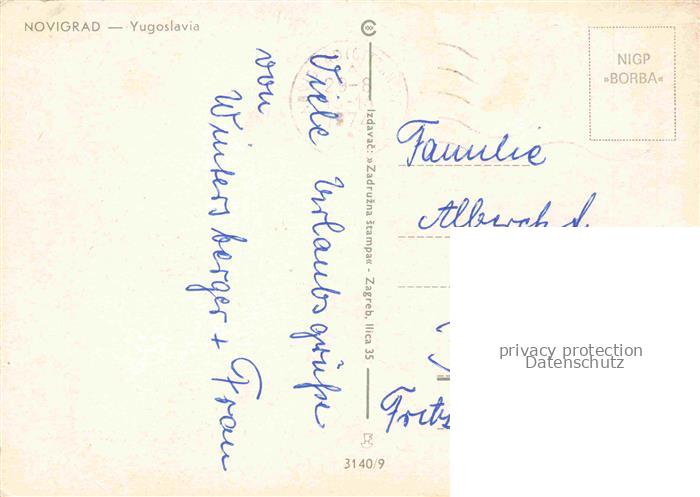 NOVIGRAD — Yugoslavia
NIGP
»BORBA«
Viele Urlaubsgrüße
von
Wintersberger + Frau
Izdavač: »Zadružna štampa« - Zagreb, Ilica 35
Familie
privacy protection
Datenschutz
3140/9